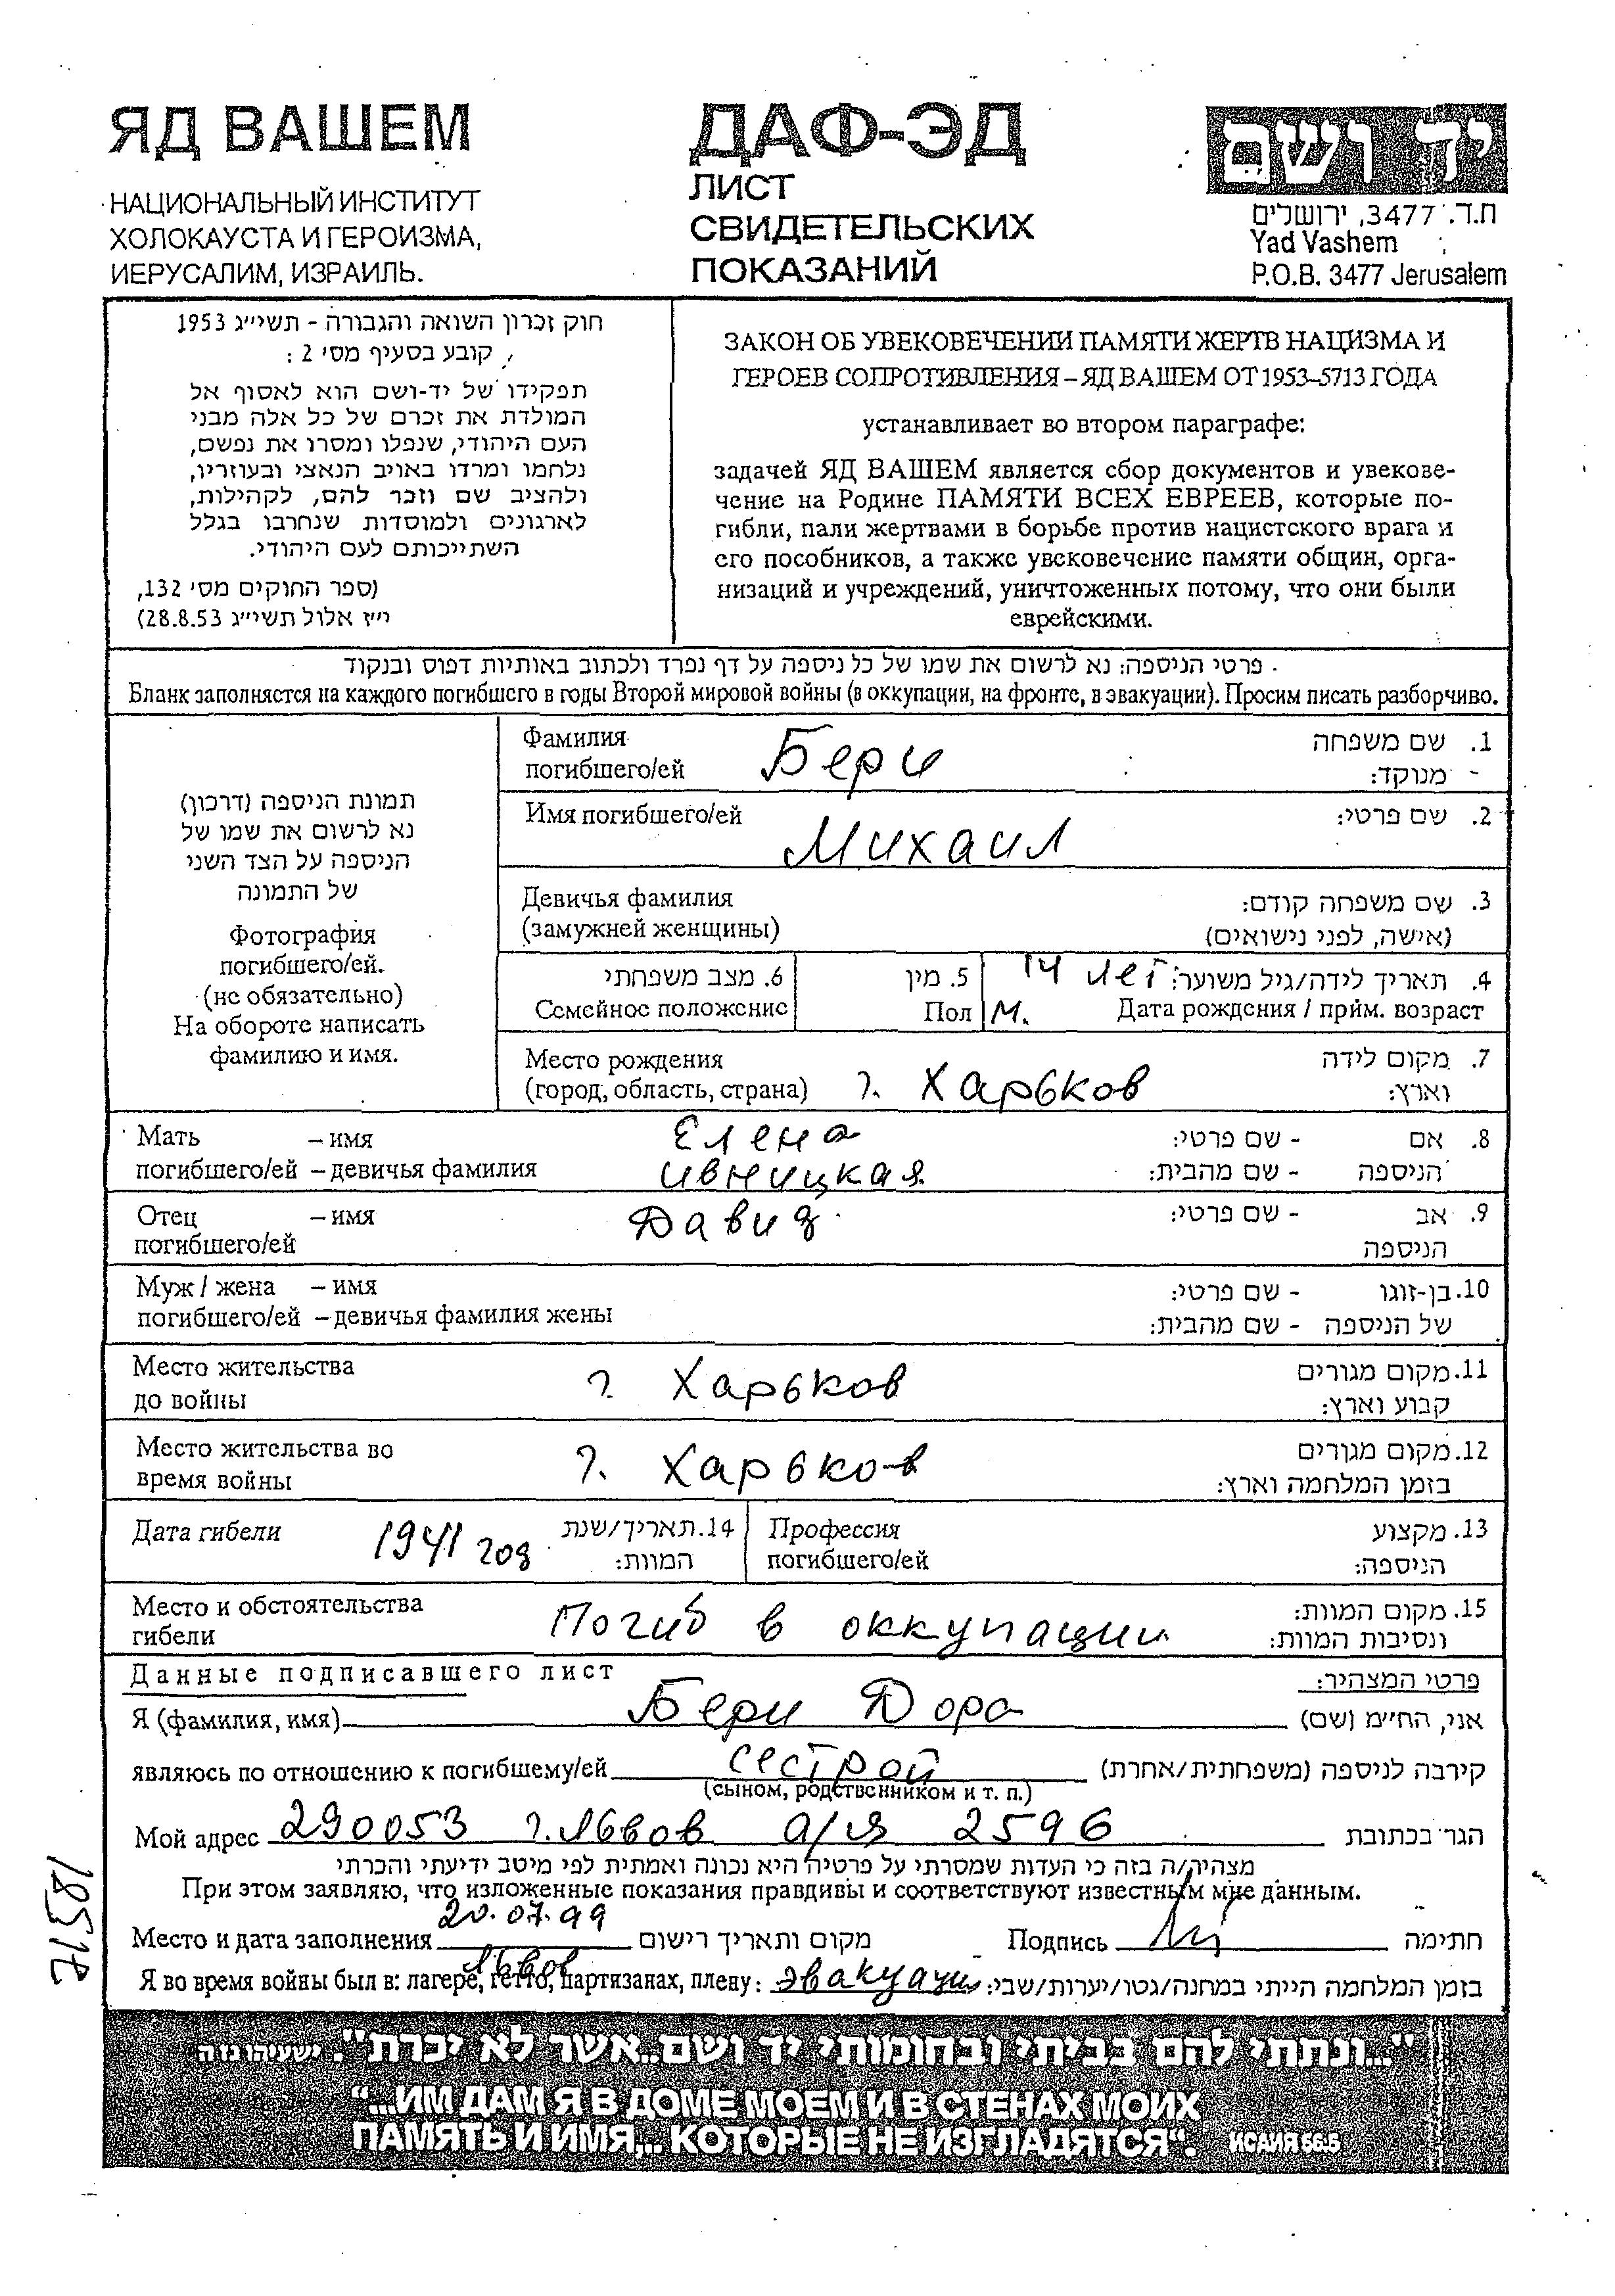 ЯД ВАШЕМ
НАЦИОНАЛЬНЫЙ ИНСТИТУТ
ХОЛОКАУСТА И ГЕРОИЗМА,
ИЕРУСАЛИМ, ИЗРАИЛЬ.
ДАФ-ЭД
ЛИСТ
СВИДЕТЕЛЬСКИХ
ПОКАЗАНИЙ
יד ושם
ת.ד. 3477, ירושלים
Yad Vashem
P.O.B. 3477 Jerusalem
חוק זכרון השואה והגבורה - תשי״ג 1953
קובע בסעיף מס׳ 2 :
תפקידו של יד-ושם הוא לאסוף אל
המולדת את זכרם של כל אלה מבני
העם היהודי, שנפלו ומסרו את נפשם,
נלחמו ומרדו באויב הנאצי ובעוזריו,
ולהציב שם וזכר להם, לקהילות,
לארגונים ולמוסדות שנחרבו בגלל
השתייכותם לעם היהודי.
(ספר החוקים מס׳ 132,
י״ז אלול תשי״ג 28.8.53)
ЗАКОН ОБ УВЕКОВЕЧЕНИИ ПАМЯТИ ЖЕРТВ НАЦИЗМА И
ГЕРОЕВ СОПРОТИВЛЕНИЯ – ЯД ВАШЕМ ОТ 1953–5713 ГОДА
устанавливает во втором параграфе:
задачей ЯД ВАШЕМ является сбор документов и увекове-
чение на Родине ПАМЯТИ ВСЕХ ЕВРЕЕВ, которые по-
гибли, пали жертвами в борьбе против нацистского врага и
его пособников, а также увековечение памяти общин, орга-
низаций и учреждений, уничтоженных потому, что они были
еврейскими.
פרטי הניספה: נא לרשום את שמו של כל ניספה על דף נפרד ולכתוב באותיות דפוס ובנקוד
Бланк заполняется на каждого погибшего в годы Второй мировой войны (в оккупации, на фронте, в эвакуации). Просим писать разборчиво.
תמונת הניספה (דרכון)
נא לרשום את שמו של
הניספה על הצד השני
של התמונה
Фотография
погибшего/ей.
(не обязательно)
На обороте написать
фамилию и имя.
Фамилия 1. שם משפחה
погибшего/ей Бери מנוקד:
Имя погибшего/ей 2. שם פרטי:
Михаил
Девичья фамилия 3. שם משפחה קודם:
(замужней женщины) (אישה, לפני נישואים)
6. מצב משפחתי 5. מין 14 лет 4. תאריך לידה/גיל משוער:
Семейное положение Пол М. Дата рождения / прим. возраст
Место рождения 7. מקום לידה
(город, область, страна) г. Харьков וארץ:
Мать – имя Елена 8. אם - שם פרטי:
погибшего/ей – девичья фамилия Ивницкая הניספה - שם מהבית:
Отец – имя Давид 9. אב - שם פרטי:
погибшего/ей הניספה
Муж / жена – имя 10. בן-זוגו - שם פרטי:
погибшего/ей – девичья фамилия жены של הניספה - שם מהבית:
Место жительства 11. מקום מגורים
до войны г. Харьков קבוע וארץ:
Место жительства во 12. מקום מגורים
время войны г. Харьков בזמן המלחמה וארץ:
Дата гибели 1941 год 14. תאריך/שנת Профессия 13. מקצוע
המוות: погибшего/ей הניספה:
Место и обстоятельства 15. מקום המוות:
гибели Погиб в оккупации ונסיבות המוות:
Данные подписавшего лист פרטי המצהיר:
Я (фамилия, имя) Бери Дора אני, הח״מ (שם)
являюсь по отношению к погибшему/ей сестрой קירבה לניספה (משפחתית/אחרת)
(сыном, родственником и т. п.)
Мой адрес 290053 г. Львов а/я 2596 הגר בכתובת
מצהיר/ה בזה כי העדות שמסרתי על פרטיה היא נכונה ואמתית לפי מיטב ידיעתי והכרתי
При этом заявляю, что изложенные показания правдивы и соответствуют известным мне данным.
20.07.99
Место и дата заполнения מקום ותאריך רישום Подпись חתימה
Львов
Я во время войны был в: лагере, гетто, партизанах, плену: эвакуации בזמן המלחמה הייתי במחנה/גטו/יערות/שבי:
"...ונתתי להם בביתי ובחומותי יד ושם..אשר לא יכרת". ישעיהו נו ה
“...ИМ ДАМ Я В ДОМЕ МОЕМ И В СТЕНАХ МОИХ
ПАМЯТЬ И ИМЯ,.. КОТОРЫЕ НЕ ИЗГЛАДЯТСЯ“. ИСАИЯ 56:5